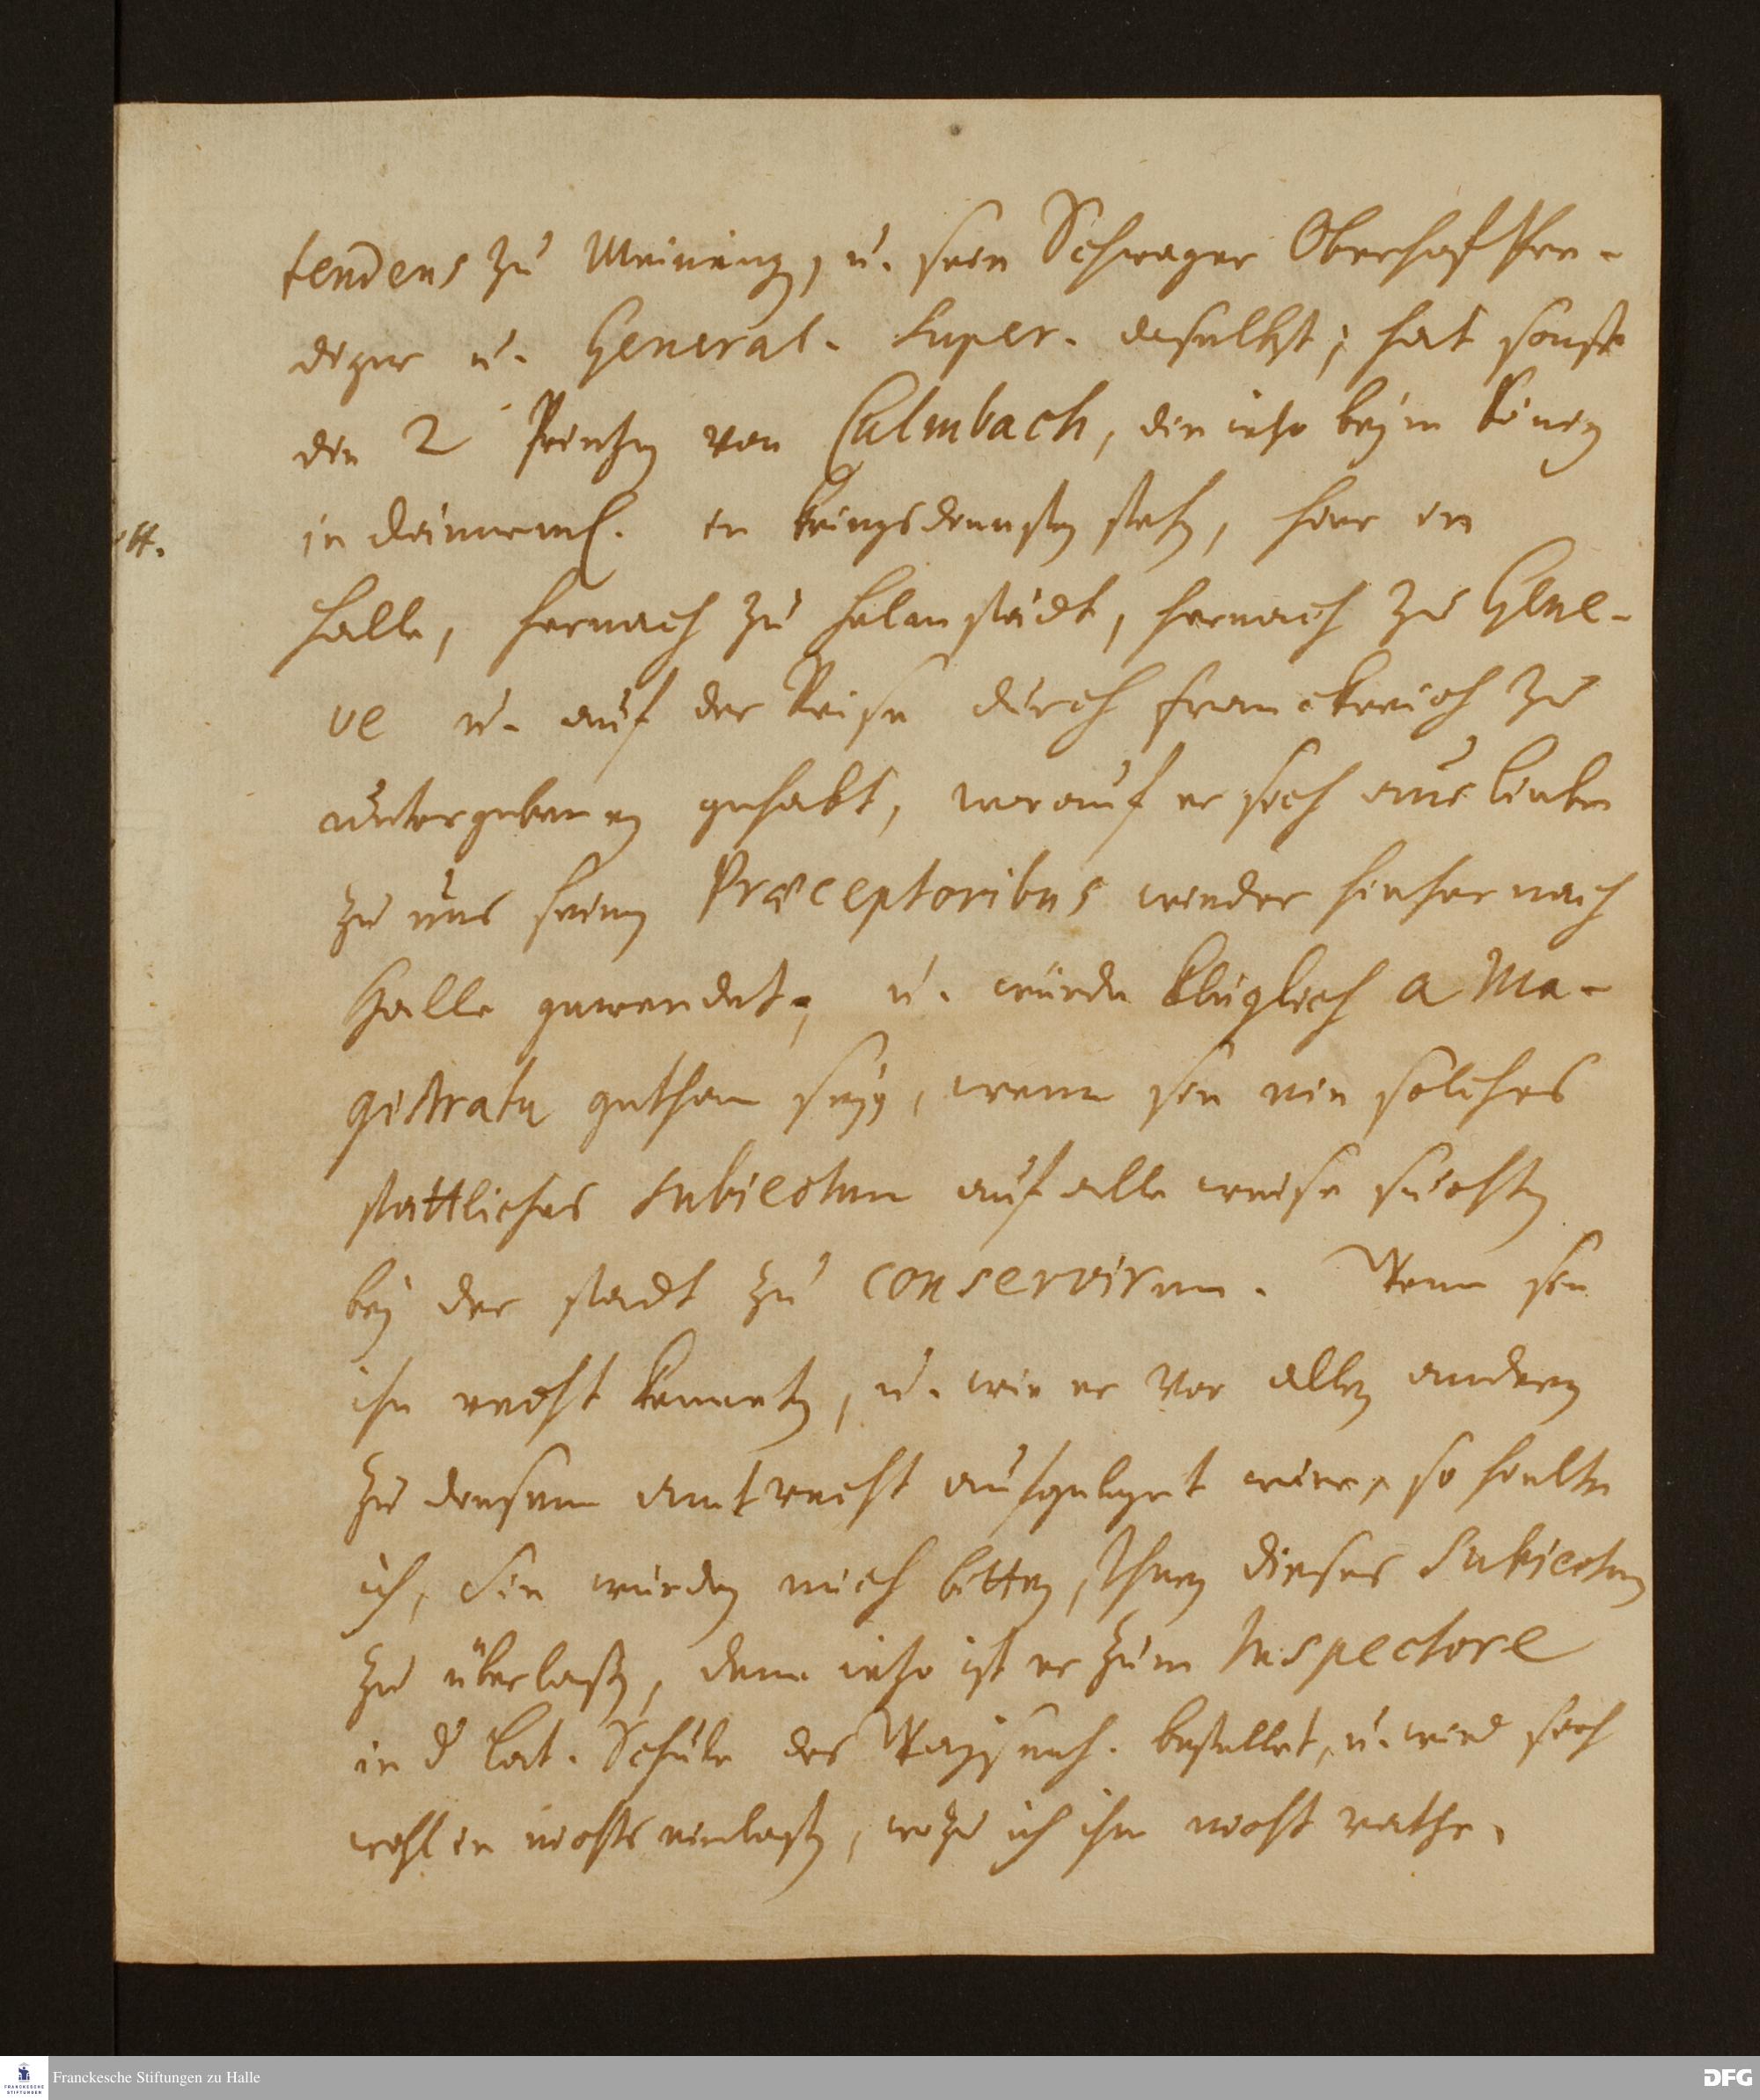 tendens zu Meining, u. sein Schwager Oberhoff Pre-
diger u. General. Super. daselbst; hat sonst
die 2 Printzen von Culmbach, die ietzo beym König
in Dännemk. in Kriegsdiensten stehn, hier in
Halle, hernach zu Helmstädt, hernach zu Gene-
ve u. auf der Reise durch Franckreich zu
untergebenen gehabt, worauf er sich aus liebe
zu uns seinen Præceptoribus wieder hieher nach
Halle gewendet, u. würde klüglich a Ma-
gistratu gethan seyn, wenn sie ein solches
stattliches Subiectum auf alle weise suchten
bey der stadt zu conserviren. Wenn sie
ihn recht kenneten, u. wie er vor allen andern
zu diesem amt recht aufgelegt wäre, so hielte
ich, Sie würden mich bitten, Ihnen dieses Subiectum
zu überlaßen, denn ietzo ist er zum Inspectore
in d Lat. Schule des Waysenh. bestellet, u. wird sich
wohl in nichts einlaßen, wozu ich ihm nicht rathe.
tt.
Franckesche Stiftungen zu Halle
FRANCKESCHE
STIFTUNGEN
DFG